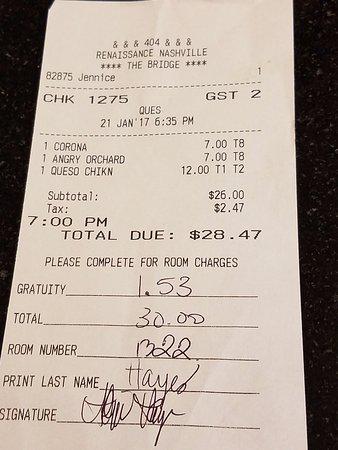 & & & 404 & & &
RENAISSANCE NASHVILLE
**** THE BRIDGE ****
82875 Jennice 1
CHK 1275 GST 2
QUES
21 JAN'17 6:35 PM
1 CORONA 7.00 T8
1 ANGRY ORCHARD 7.00 T8
1 QUESO CHIKN 12.00 T1 T2
Subtotal: $26.00
Tax: $2.47
7:00 PM
TOTAL DUE: $28.47
PLEASE COMPLETE FOR ROOM CHARGES
GRATUITY 1.53
TOTAL 30.00
ROOM NUMBER
PRINT LAST NAME Hayes
SIGNATURE